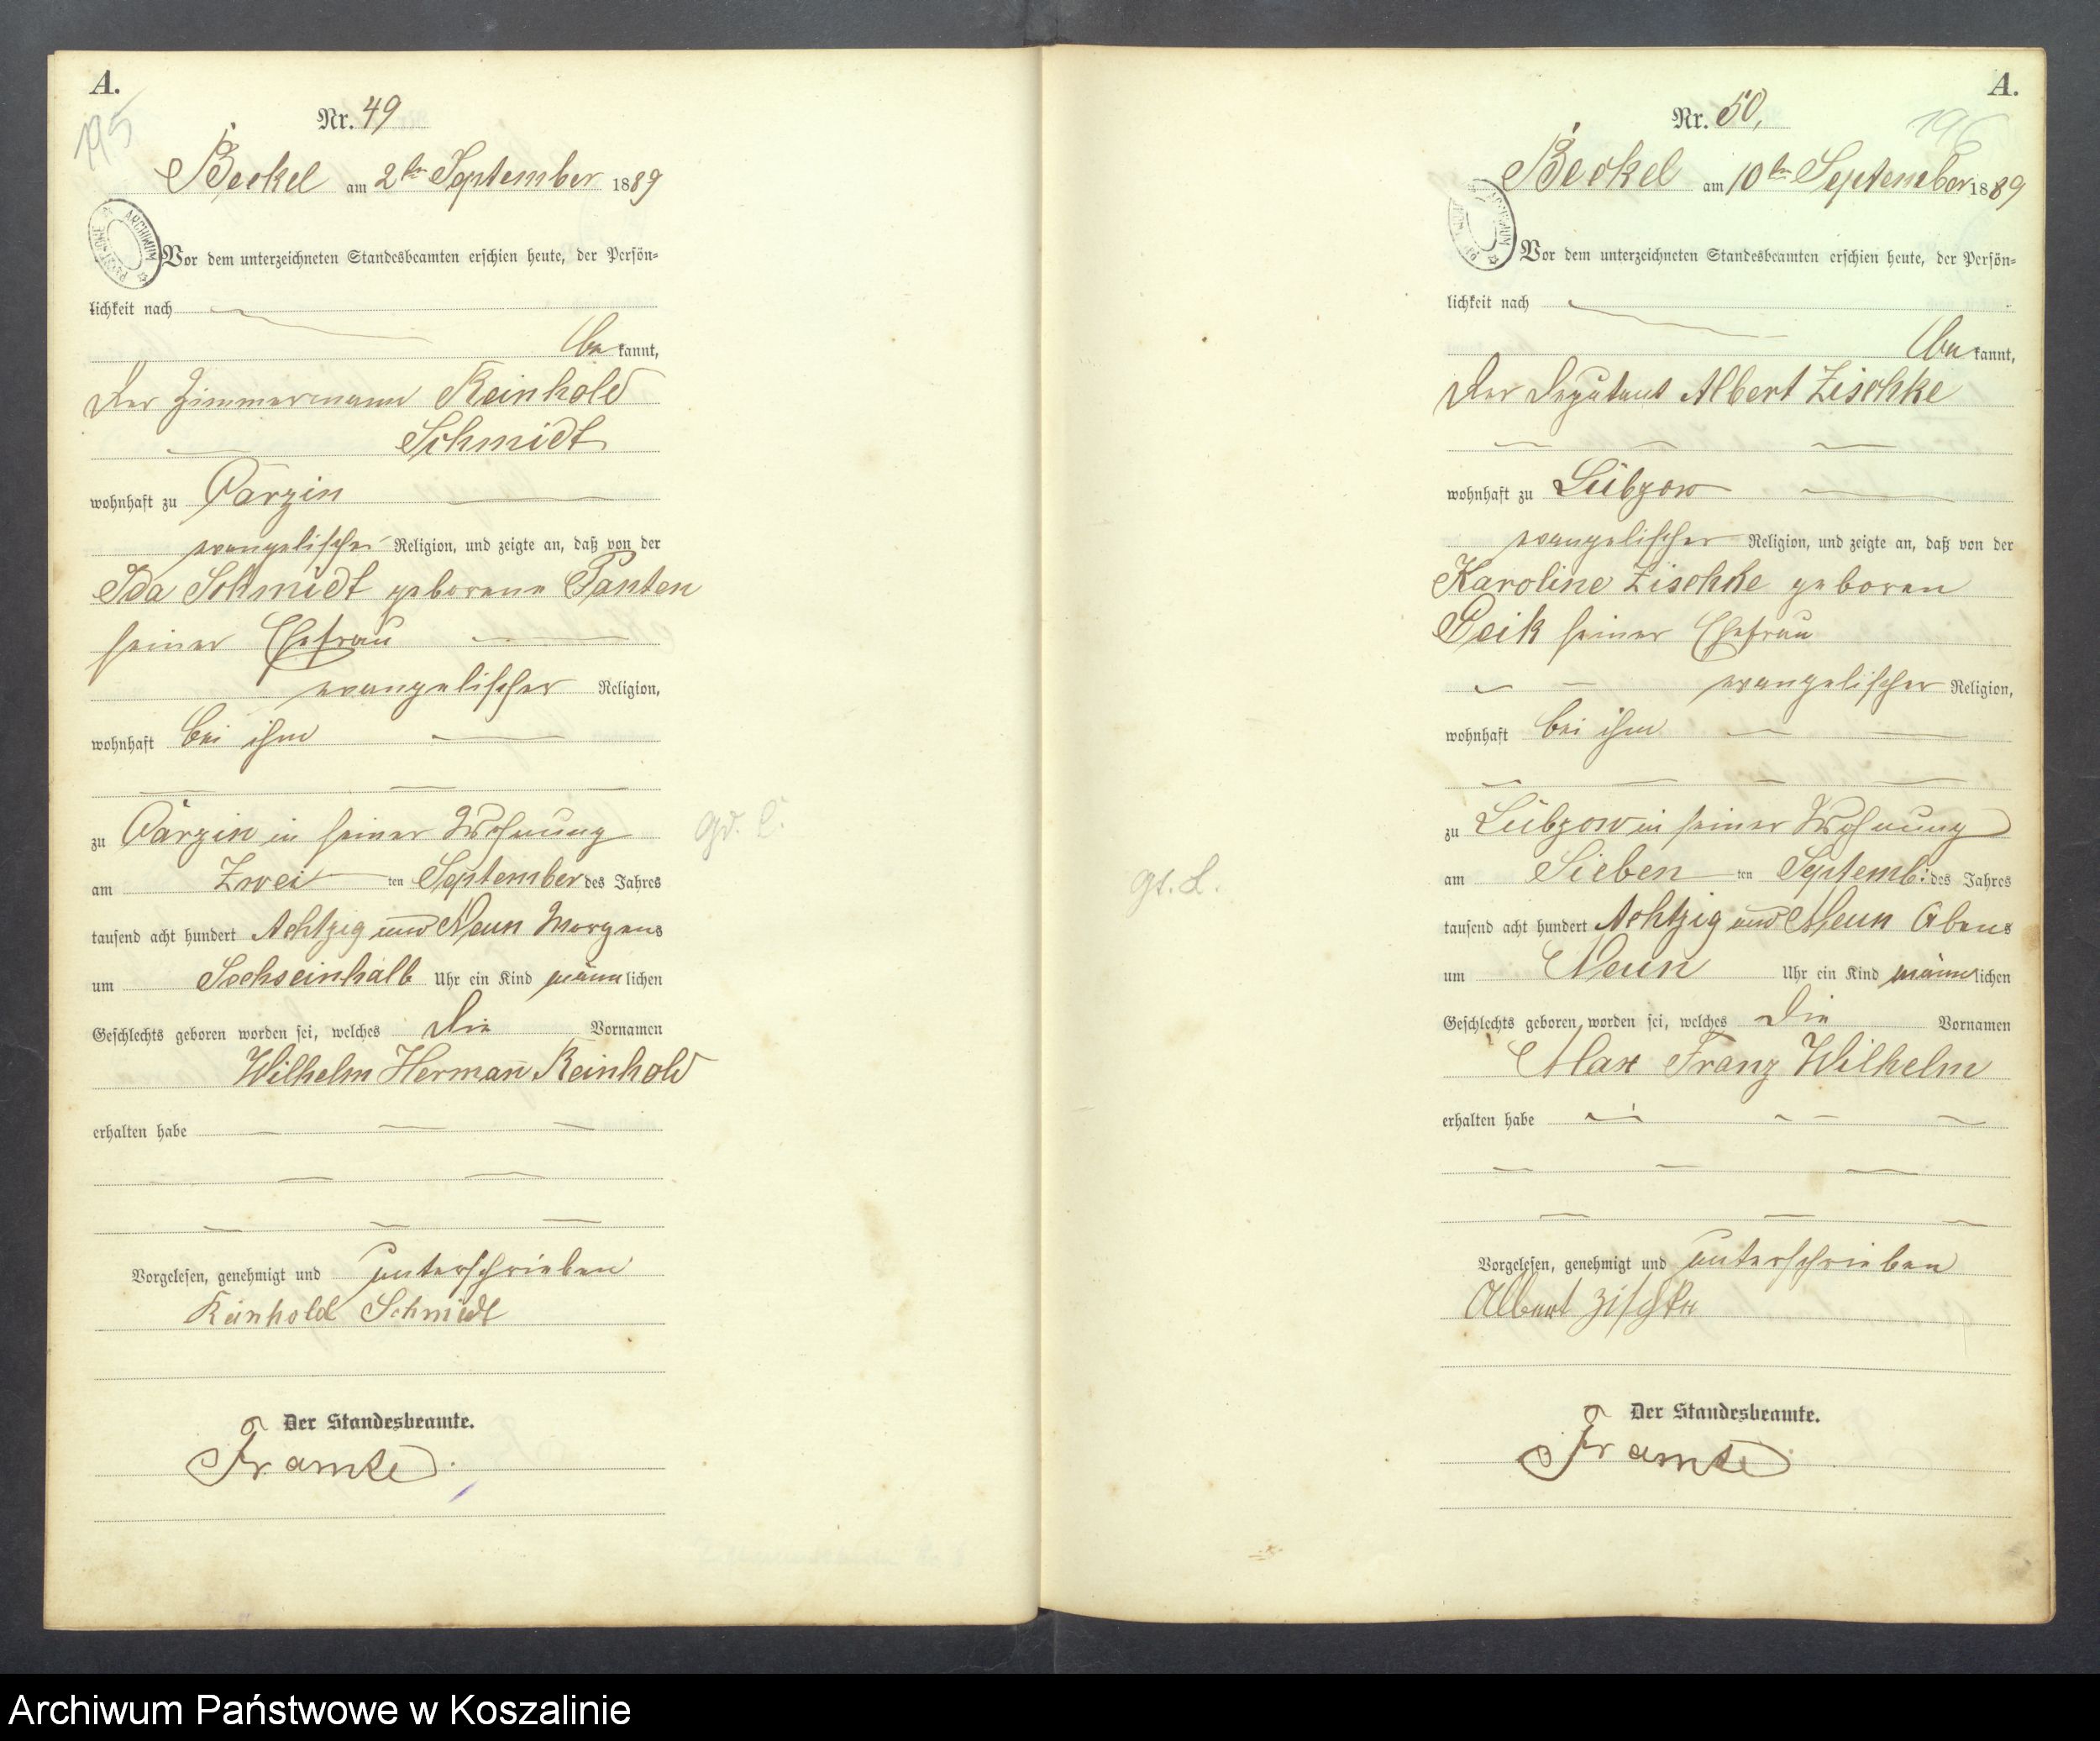 A.
195
Nr. 49
Beckel am 2ten September 1889
ARCHIWUM
Vor dem unterzeichneten Standesbeamten erschien heute, der Persön=
lichkeit nach
bekannt,
der Zimmermann Reinhold
Schmidt
wohnhaft zu Varzin
evangelischer Religion, und zeigte an, daß von der
Ida Schmidt geborene Panten
seiner Ehefrau
evangelischer Religion,
wohnhaft bei ihm
zu Varzin in seiner Wohnung
am Zwei ten September des Jahres
tausend acht hundert Achtzig und Neun Morgens
um Sechseinhalb Uhr ein Kind männlichen
Geschlechts geboren worden sei, welches die Vornamen
Wilhelm Hermann Reinhold
erhalten habe
Vorgelesen, genehmigt und unterschrieben
Reinhold Schmidt
Der Standesbeamte.
Framke
A.
196
Nr. 50,
Beckel am 10ten September 1889
ARCHIWUM
Vor dem unterzeichneten Standesbeamten erschien heute, der Persön=
lichkeit nach
bekannt,
der Deputant Albert Zischke
wohnhaft zu Lübzow
evangelischer Religion, und zeigte an, daß von der
Karoline Zischke geboren
Geik seiner Ehefrau
evangelischer Religion,
wohnhaft bei ihm
zu Lübzow in seiner Wohnung
am Sieben ten Septemb: des Jahres
tausend acht hundert Achtzig und Neun Abens
um Neun Uhr ein Kind männlichen
Geschlechts geboren worden sei, welches die Vornamen
Max Franz Wilhelm
erhalten habe
Vorgelesen, genehmigt und unterschrieben
Albert Zischke
Der Standesbeamte.
Framke
Archiwum Państwowe w Koszalinie